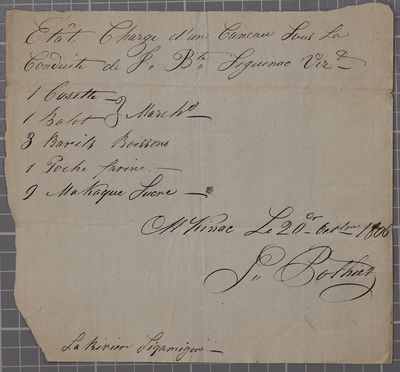 Etat Charge d'un Caneau Sous La
Conduite de J,, Bte,, Sequinac Vizt
1 Casette
1 Balot } Marchd
3 Barils Boissons
1 Poche farine
9 Makaque Sucre
Mkinac Le 20 1806
J,, Pothier
La Rivier